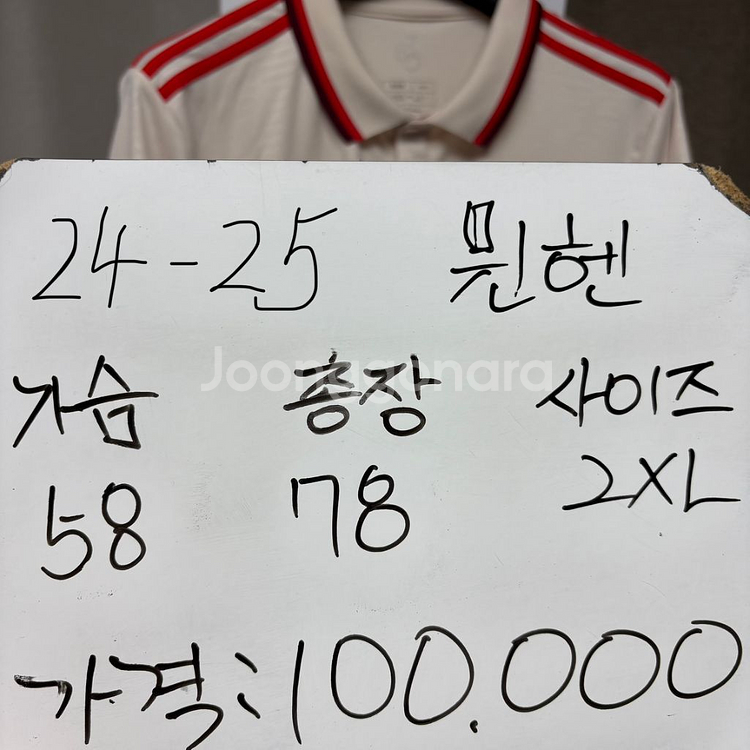 24-25 뮌헨
가슴 총장 사이즈
Joonggonara
58 78 2XL
가격:100.000